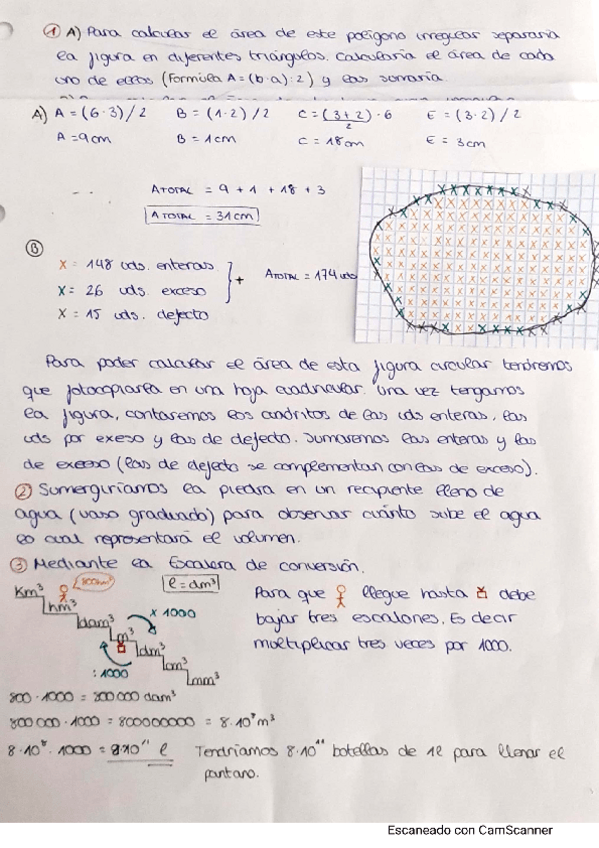 ① A) Para calcular el área de este polígono irregular separaría
la figura en diferentes triángulos. Calcularía el área de cada
uno de ellos (Formula A = (b·a):2) y las sumaría.
A) A = (6·3)/2 B = (1·2)/2 C = (3+2)/2 · 6 E = (3·2)/2
A = 9cm B = 1cm C = 18cm E = 3cm
ATOTAL = 9 + 1 + 18 + 3
ATOTAL = 31cm
Ⓑ
X = 148 uds. enteras
X = 26 uds. exceso } + ATOTAL = 174 uds
X = 15 uds. defecto
Para poder calcular el área de esta figura circular tendremos
que fotocopiarla en una hoja cuadricular. Una vez tengamos
la figura, contaremos los cuadritos de las uds enteras, las
uds por exeso y las de defecto. Sumaremos las enteras y las
de exceso (las de defecto se complementan con las de exceso).
② Sumergiríamos la piedra en un recipiente lleno de
agua (vaso graduado) para observar cuánto sube el agua
lo cual representará el volumen.
③ Mediante la Escalera de conversión.
800hm³
l = dm³
Km³
hm³
dam³
m³
dm³
cm³
mm³
x 1000
:1000
Para que llegue hasta debe
bajar tres escalones. Es decir
multiplicar tres veces por 1000.
800·1000 = 800000 dam³
800 000·1000 = 800000000 = 8·10⁸m³
8·10⁸·1000 = 8·10¹¹ l Tendríamos 8·10¹¹ botellas de 1l para llenar el
pantano.
Escaneado con CamScanner